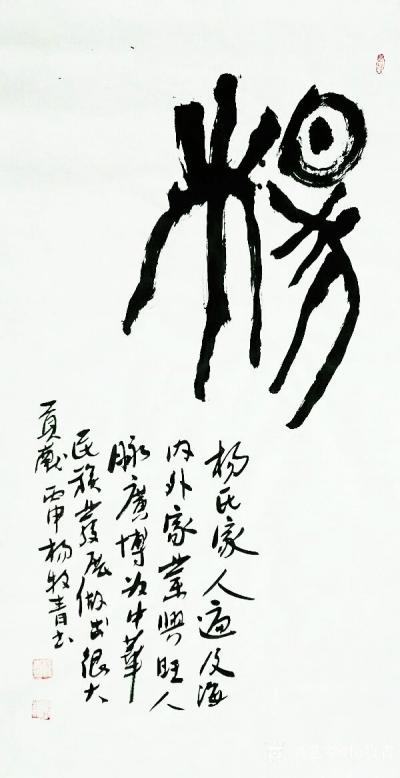 杨
杨氏家人遍及海
内外家業興旺人
脉廣博为中華
民族发展做出很大
貢献丙申杨牧青书